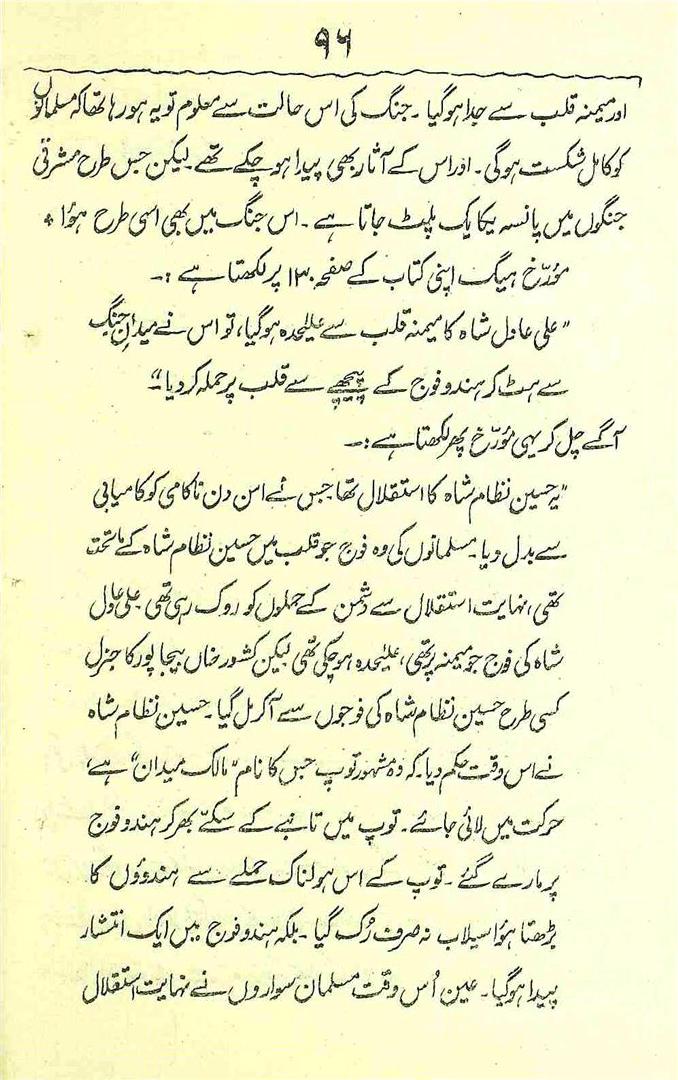 ۹۶
اور میمنہ قلب سے جدا ہو گیا۔ جنگ کی اس حالت سے معلوم تو یہ ہو رہا تھا کہ مسلمانوں
کو کامل شکست ہوگی۔ اور اس کے آثار بھی پیدا ہو چکے تھے۔ لیکن جس طرح مشرقی
جنگوں میں پانسہ یکایک پلٹ جاتا ہے۔ اس جنگ میں بھی اسی طرح ہؤا *
مؤرّخ ہیگ اپنی کتاب کے صفحہ ۱۳۰ پر لکھتا ہے :۔
”علی عادل شاہ کا میمنہ قلب سے علیٰحدہ ہو گیا، تو اس نے میدانِ جنگ
سے ہٹ کر ہندو فوج کے پیچھے سے قلب پر حملہ کر دیا“۔
آگے چل کر یہی مؤرّخ پھر لکھتا ہے :۔
”یہ حسین نظام شاہ کا استقلال تھا جس نے اس دن ناکامی کو کامیابی
سے بدل دیا۔ مسلمانوں کی وہ فوج جو قلب میں حسین نظام شاہ کے ماتحت
تھی، نہایت استقلال سے دشمن کے حملوں کو روک رہی تھی۔ علی عادل
شاہ کی فوج جو میمنہ پر تھی، علیٰحدہ ہو چکی تھی لیکن کشور خاں بیجا پور کا جنرل
کسی طرح حسین نظام شاہ کی فوجوں سے آ کر مل گیا۔ حسین نظام شاہ
نے اس وقت حکم دیا۔ کہ وہ مشہور توپ جس کا نام ”مالک میدان“ ہے،
حرکت میں لائی جائے۔ توپ میں تانبے کے سکّے بھر کر ہندو فوج
پر مارے گئے۔ توپ کے اس ہولناک حملے سے ہندوؤں کا
بڑھتا ہؤا سیلاب نہ صرف رُک گیا۔ بلکہ ہندو فوج میں ایک انتشار
پیدا ہو گیا۔ عین اُس وقت مسلمان سواروں نے نہایت استقلال